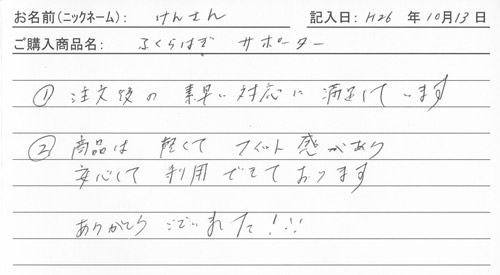 お名前(ニックネーム): けんさん 記入日: H26 年10月13日
ご購入商品名: ふくらはぎ サポーター
① 注文後の 素早い対応に 満足して います
② 商品は 軽くて フィット感があり
安心して 利用 できて おります
ありがとう ございました!!!